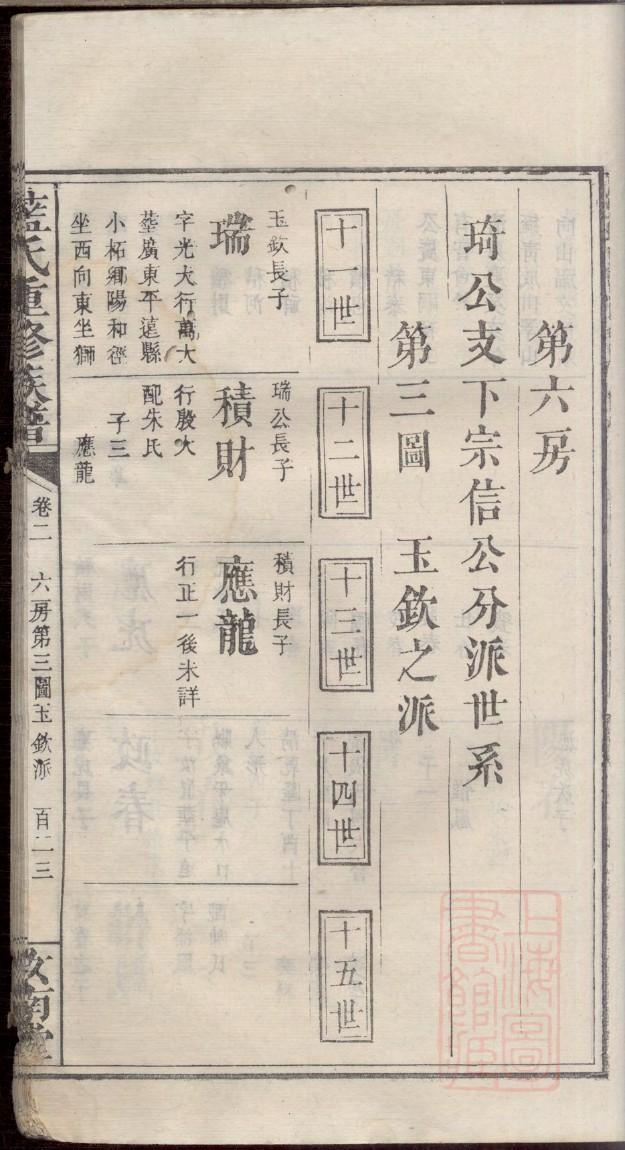 第六房
琦公支下宗信公分派世系
第三圖 玉欽之派
十一世
十二世
十三世
十四世
十五世
玉欽長子
瑞
字光大行萬大
塟廣東平遠縣
小柘鄉陽和徑
坐西向東坐獅
瑞公長子
積財
行殷大
配朱氏
子三
應龍
積財長子
應龍
行正一後未詳
藍氏重修族譜
卷二 六房第三圖玉欽派 百二三
汝南堂
上海圖書館藏